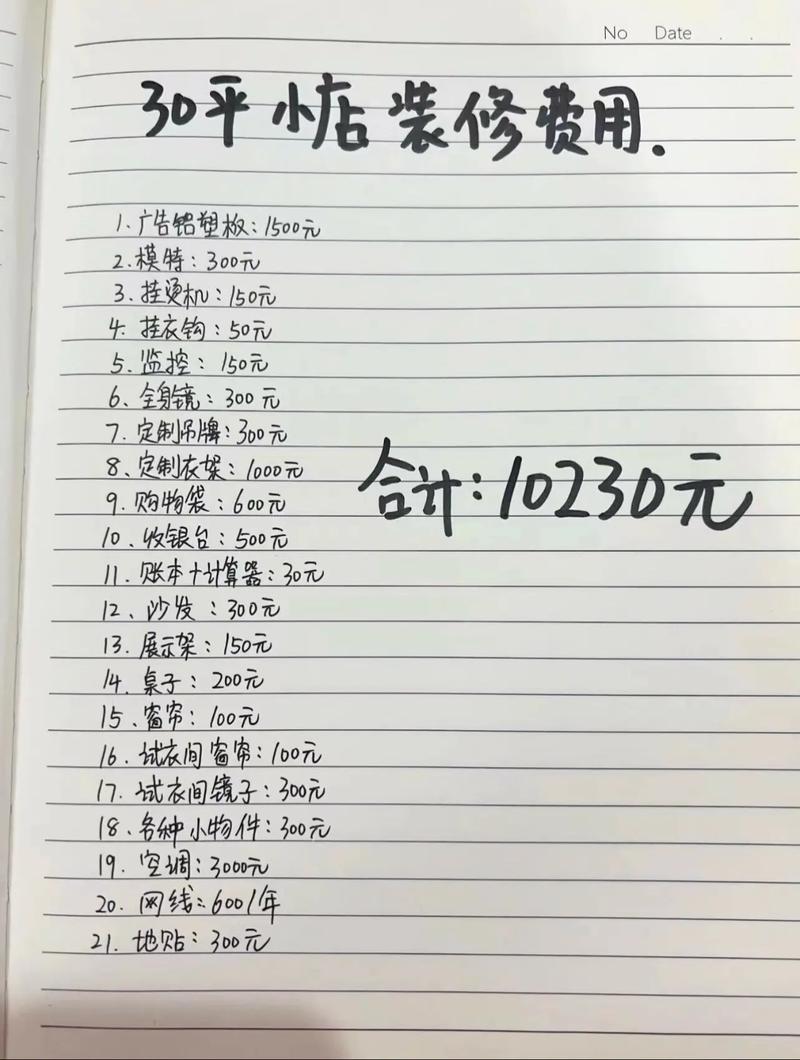 No Date . .
30平小店装修费用.
1.广告铝塑板:1500元
2.模特:300元
3.挂烫机:150元
4.挂衣钩:50元
5.监控:150元
6、全身镜:300元
7.定制吊牌:300元
8、定制衣架:1000元
9、购物袋:600元
10、收银台:500元
11、账本+计算器:30元
12、沙发:300元
13.展示架:150元
14.桌子:200元
15、窗帘:100元
16.试衣间窗帘:100元
17.试衣间镜子:300元
18、各种小物件:300元
19.空调:3000元
20.网线:600/年
21.地贴:300元
合计:10230元